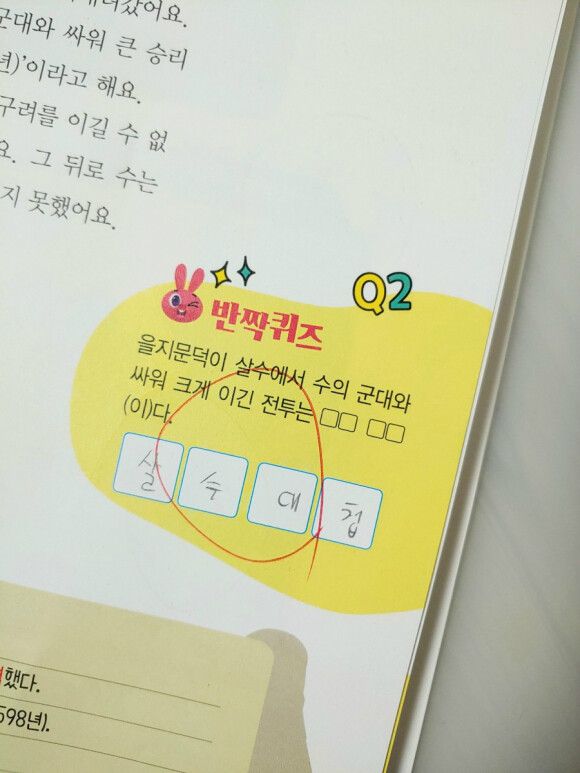 갔어요.
군대와 싸워 큰 승리
년)'이라고 해요.
구려를 이길 수 없
요. 그 뒤로 수는
지 못했어요.
Q2
반짝퀴즈
을지문덕이 살수에서 수의 군대와
싸워 크게 이긴 전투는 □□ □□
(이)다.
살 수 대 첩
했다.
598년).